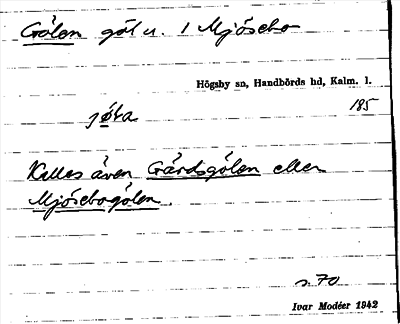 Gölen göl u. 1 Mjösebo
Högsby sn, Handbörds hd, Kalm. l.
185
Kallas även Gårdsgölen eller
Mjösebogölen.
s. 70
Ivar Modéer 1942